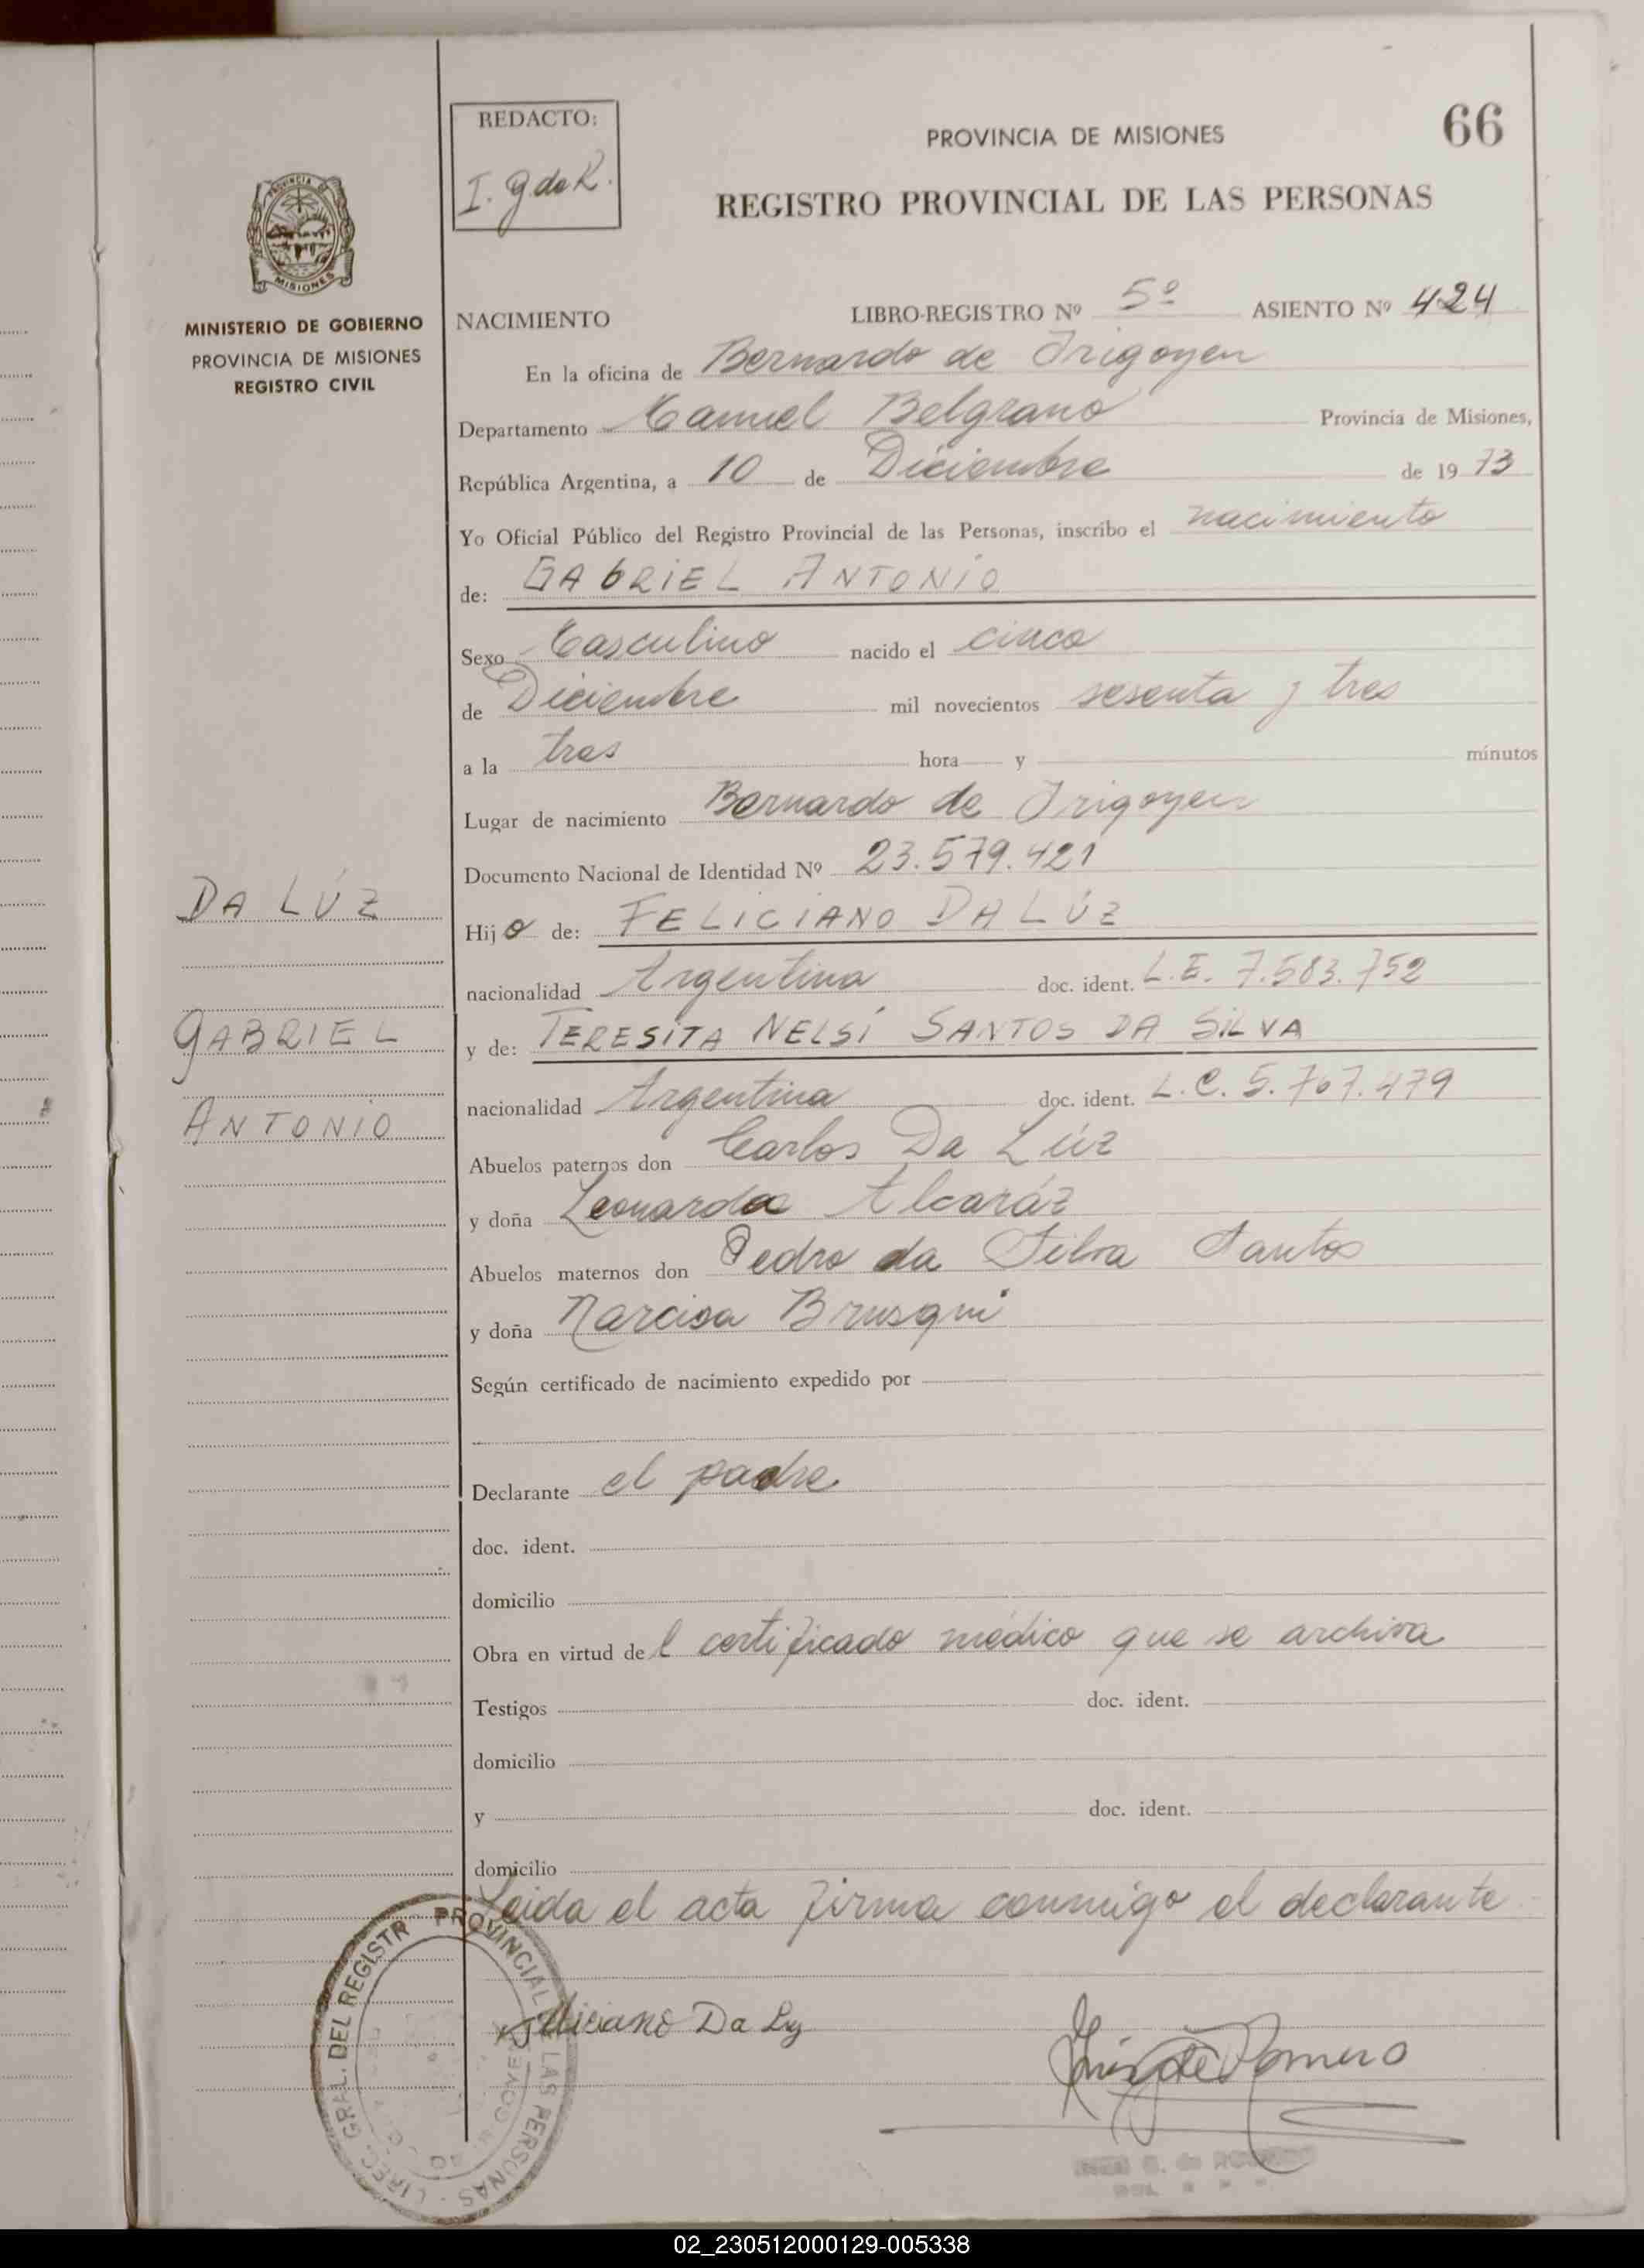 REDACTO:
I. G. de R.
PROVINCIA DE MISIONES
66
REGISTRO PROVINCIAL DE LAS PERSONAS
MISIONES
MINISTERIO DE GOBIERNO
PROVINCIA DE MISIONES
REGISTRO CIVIL
NACIMIENTO LIBRO-REGISTRO Nº 5º ASIENTO Nº 424
En la oficina de Bernardo de Irigoyen
Departamento Manuel Belgrano Provincia de Misiones,
República Argentina, a 10 de Diciembre de 1973
Yo Oficial Público del Registro Provincial de las Personas, inscribo el nacimiento
de: GABRIEL ANTONIO
Sexo Masculino nacido el cinco
de Diciembre mil novecientos sesenta y tres
a la tres hora y minutos
Lugar de nacimiento Bernardo de Irigoyen
Documento Nacional de Identidad Nº 23.579.421
DA LÚZ
Hijo de: FELICIANO DA LÚZ
nacionalidad Argentina doc. ident. L.E. 7.583.752
GABRIEL
y de: TERESITA NELSI SANTOS DA SILVA
nacionalidad Argentina doc. ident. L.C. 5.707.479
ANTONIO
Abuelos paternos don Carlos Da Lúz
y doña Leonarda Alcaráz
Abuelos maternos don Pedro da Silva Santos
y doña Narcisa Brusqui
Según certificado de nacimiento expedido por
Declarante el padre
doc. ident.
domicilio
Obra en virtud del certificado médico que se archiva
Testigos doc. ident.
domicilio
y doc. ident.
domicilio
Leida el acta firma conmigo el declarante
GRAL. DEL REGISTR PROVINCIAL LAS PERSONAS
Feliciano Da Luz
de Romero
02_230512000129-005338